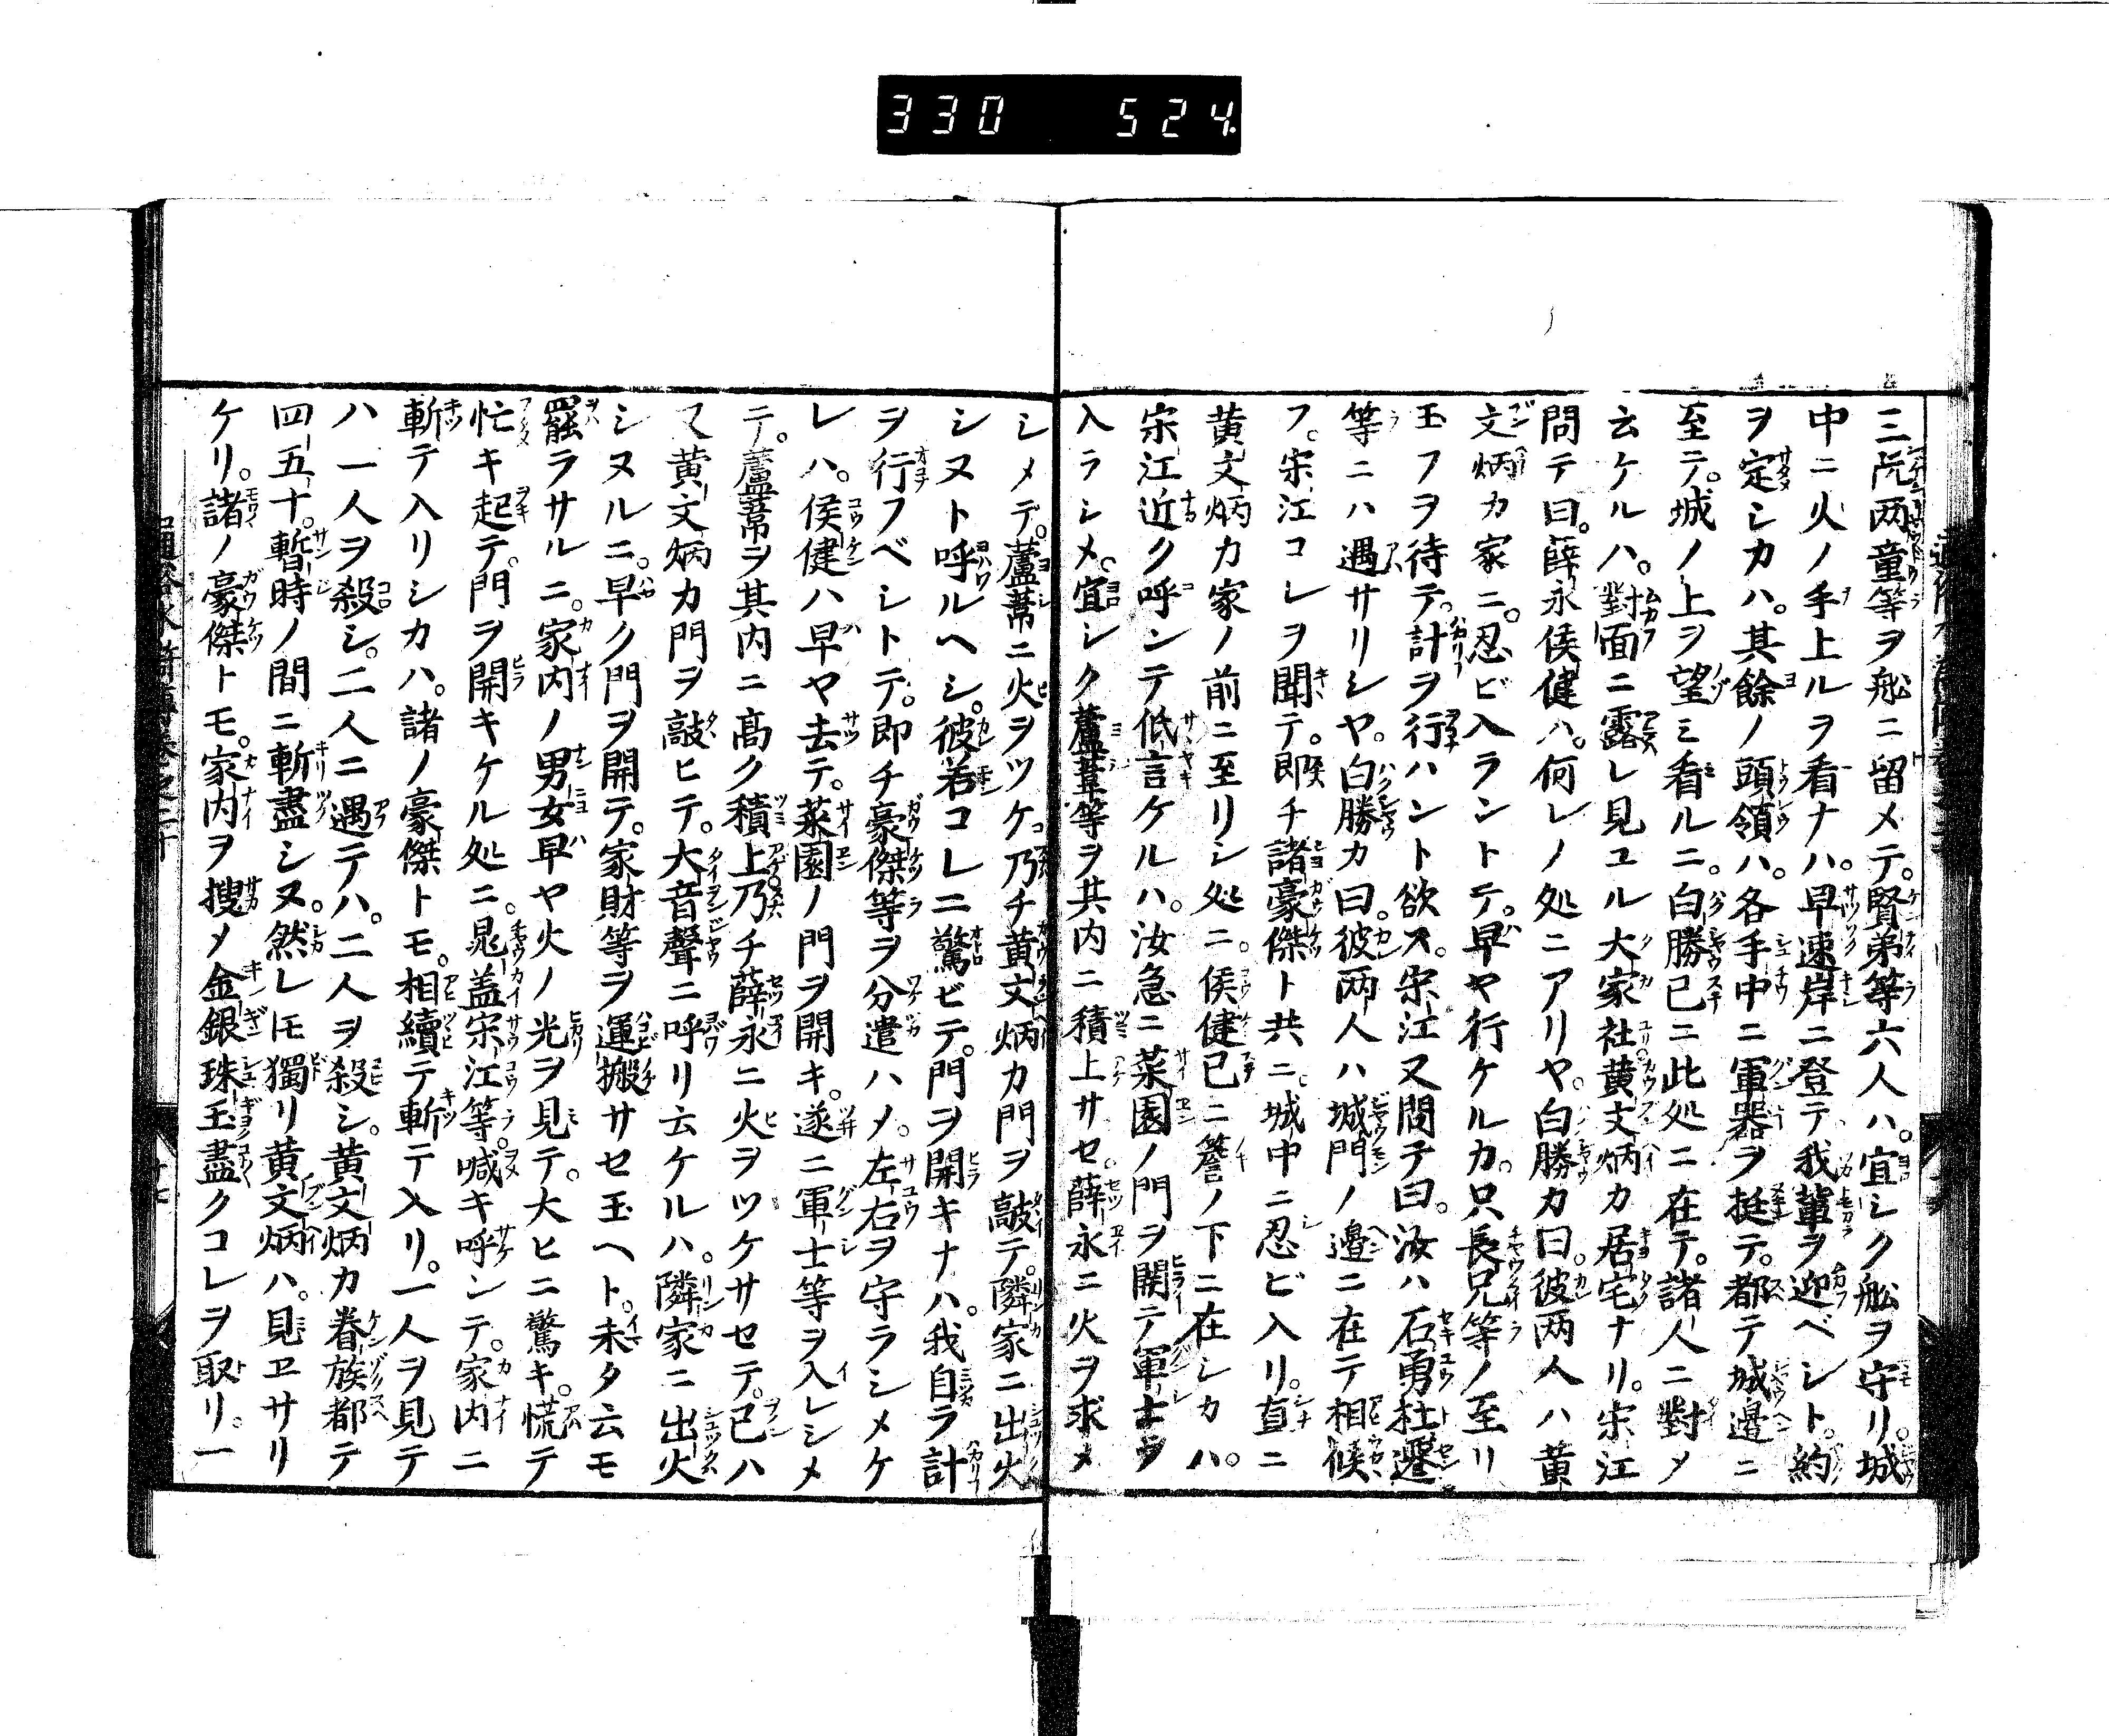 330 524.
三阮両童等ヲ舩ニ留メテ。賢弟等六人ハ。宜シク舩ヲ守リ。城
中ニ火ノ手上ルヲ看ナハ。早速岸ニ登テ我輩ヲ迎ベシト。約
ヲ定シカハ。其餘ノ頭領ハ。各手中ニ軍器ヲ挺テ。都テ城邉ニ
至テ。城ノ上ヲ望ミ看ルニ。白勝已ニ此処ニ在テ。諸人ニ對メ
云ケルハ。對面ニ露レ見ユル大家社黄文炳カ居宅ナリ。宋江
問テ曰。薛永侯健ハ。何レノ処ニアリヤ。白勝カ曰。彼両人ハ黄
文炳カ家ニ。忍ビ入ラントテ。早ヤ行ケルカ。只長兄等ノ至リ
玉フヲ待テ。計ヲ行ハント欲ス。宋江又問テ曰。汝ハ石勇杜遷
等ニハ遇サリシヤ。白勝カ曰。彼両人ハ城門ノ邉ニ在テ相候
フ。宋江コレヲ聞テ。即チ諸豪傑ト共ニ。城中ニ忍ビ入リ。直ニ
黄文炳カ家ノ前ニ至リシ処ニ。侯健已ニ簷ノ下ニ在シカハ。
宋江近ク呼ンテ低言ケルハ。汝急ニ菜園ノ門ヲ開テ軍士ヲ
入ラシメ。宜シク蘆葦等ヲ其内ニ積上サセ。薛永ニ火ヲ求メ
シメテ。蘆葦ニ火ヲツケ乃チ黄文炳カ門ヲ敲テ。隣家ニ出火
シヌト呼ルヘシ。彼若コレニ驚ビテ。門ヲ開キナハ。我自ラ計
ヲ行フベシトテ。即チ豪傑等ヲ分遣ハメ。左右ヲ守ラシメケ
レハ。侯健ハ早ヤ去テ。菜園ノ門ヲ開キ。遂ニ軍士等ヲ入レシメ
テ。蘆葦ヲ其内ニ高ク積上乃チ薛永ニ火ヲツケサセテ。已ハ
又黄文炳カ門ヲ敲ヒテ。大音聲ニ呼リ云ケルハ。隣家ニ出火
シヌルニ。早ク門ヲ開テ。家財等ヲ運搬サセ玉ヘト。未タ云モ
罷ラサルニ。家内ノ男女早ヤ火ノ光ヲ見テ。大ヒニ驚キ。慌テ
忙キ起テ。門ヲ開キケル処ニ。晁盖宋江等。喊キ呼ンテ。家内ニ
斬テ入リシカハ。諸ノ豪傑トモ。相續テ斬テ入リ。一人ヲ見テ
ハ一人ヲ殺シ。二人ニ遇テハ。二人ヲ殺シ。黄文炳カ眷族都テ
四五十。暫時ノ間ニ斬盡シヌ。然レモ獨リ黄文炳ハ。見ヱサリ
ケリ。諸ノ豪傑トモ。家内ヲ捜メ金銀珠玉盡クコレヲ取リ。一